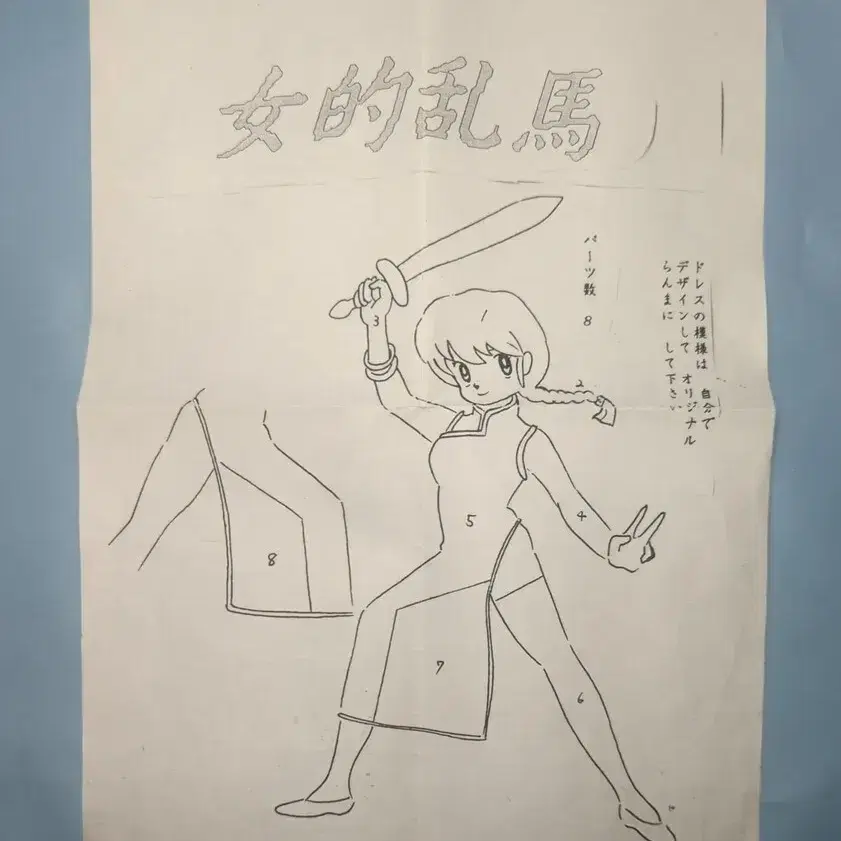 女的乱馬
パーツ数 8
ドレスの模様は 自分で
デザインして オリジナル
らんまに して下さい
1
2
3
4
5
6
7
8